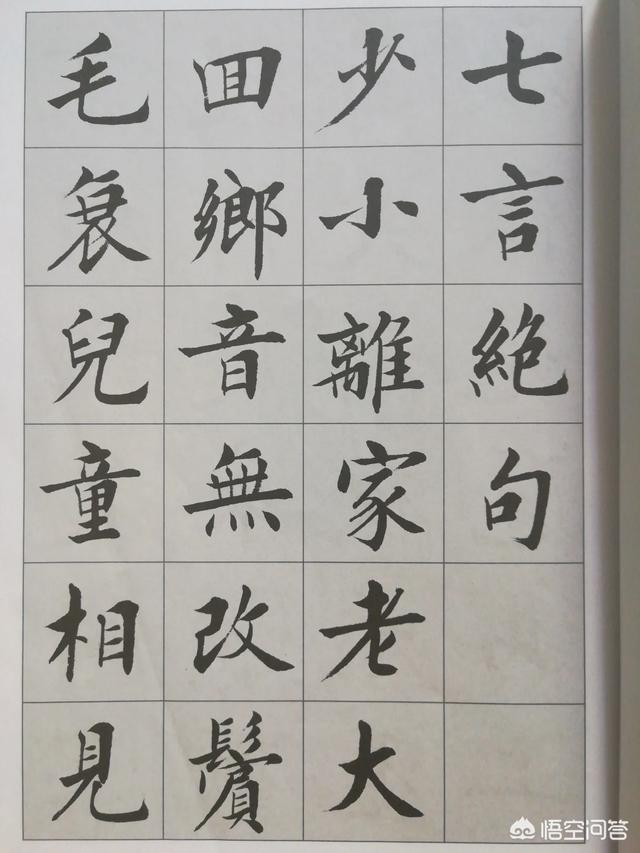 七言絶句
少小離家老大
囬鄉音無改鬢
毛衰兒童相見
悟空问答